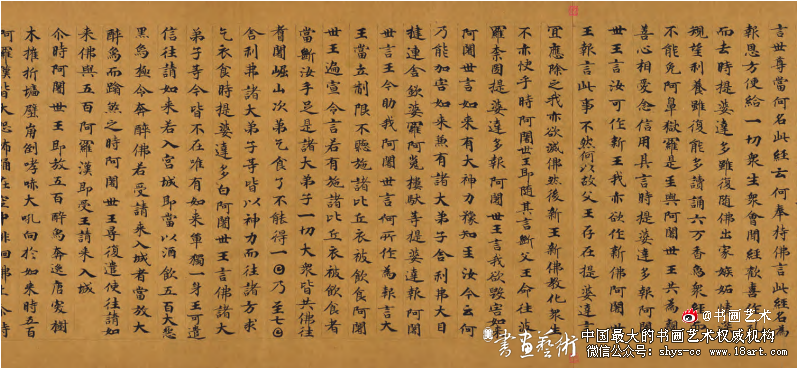 言世尊當何名此經云何奉持佛言此經名為
報恩方便給一切衆生衆會聞經歡喜作
而去時提婆達多雖復隨佛出家嫉妬情
規望利養雖復能多讀誦六万香象經
不能免阿鼻獄羅是主與阿闍世王共為
善心相愛念信用其言時提婆達多報阿闍
世王言汝可作新王我亦欲作新佛阿闍
王報言此事不然何以故父王存在提婆達言
宜應除之我亦欲滅佛然後新王新佛教化衆生
不亦快乎時阿闍世王即隨其言斷父王命往婆
羅柰國提婆達多報阿闍世王言我欲毀害如
阿闍世言如來有大神力豫知王汝今云何
乃能加害如來兼有諸大弟子舍利弗大目
揵連舍婆羅阿㝹樓馱等提婆達多報阿闍
世言王今助我阿闍世言何所作為報言大
王當立制限不聽施諸比丘衣被飲食阿闍
世王遍宣令言若有施諸比丘衣被飲食者
當斷汝手足是諸大弟子一切大衆皆共佛住
耆闍崛山次弟乞食了不能得一日乃至七日
舍利弗諸大弟子等皆以神力而往諸方求
乞衣食時提婆達多白阿闍世王言佛諸大
弟子等今皆不在唯有如來單獨一身王可遣
信往請如來若入宮城即當以酒飲五百大惡
黑象極令奔醉佛若受請來入城者當放大
醉象而蹹煞之時阿闍世王尋復遣使往請如
來佛與五百阿羅漢即受王請来入城
尒時阿闍世王即放五百醉象奔逸唐突樹
木摧折墻壁崩倒哮大吼向於如來時五百
阿羅漢皆大恐怖踊在空中徘徊佛上
@书画艺术
書畫藝術
中国最大的书画艺术权威机构
微信公众号：shys-cc www.18art.com